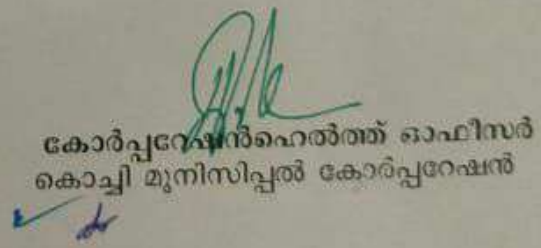 കോർപ്പറേഷൻഹെൽത്ത് ഓഫീസർ
കൊച്ചി മുനിസിപ്പൽ കോർപ്പറേഷൻ